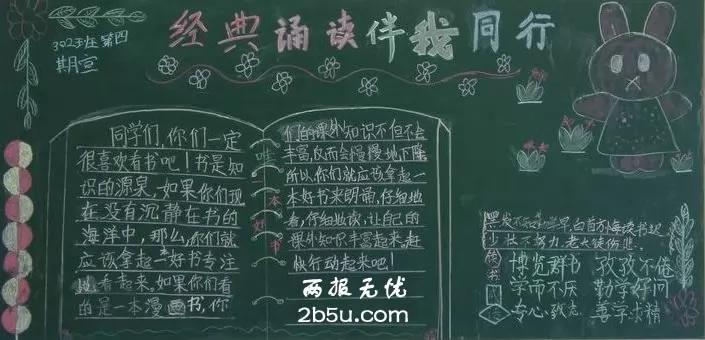 经典诵读伴我同行
302班第四
期宣
同学们,你们一定
很喜欢看书吧!书是知
识的源泉,如果你们现
在没有沉静在书的
海洋中,那么,你们就
应该拿起一本好书专注
地看起来,如果你们看
的是一本漫画书,你
们的课外知识不但不会
丰富,反而会慢慢地下降
所以,你们就应该拿起一
本好书来朗诵,仔细地
看,仔细地读,让自己的
课外知识丰富起来,赶
快行动起来吧!
本好书
黑发不知勤学早,白首方悔读书迟
少壮不努力,老大徒伤悲
博览群书 孜孜不倦
学而不厌 勤学好问
专心致志 善学求精
两报无忧
2b5u.com